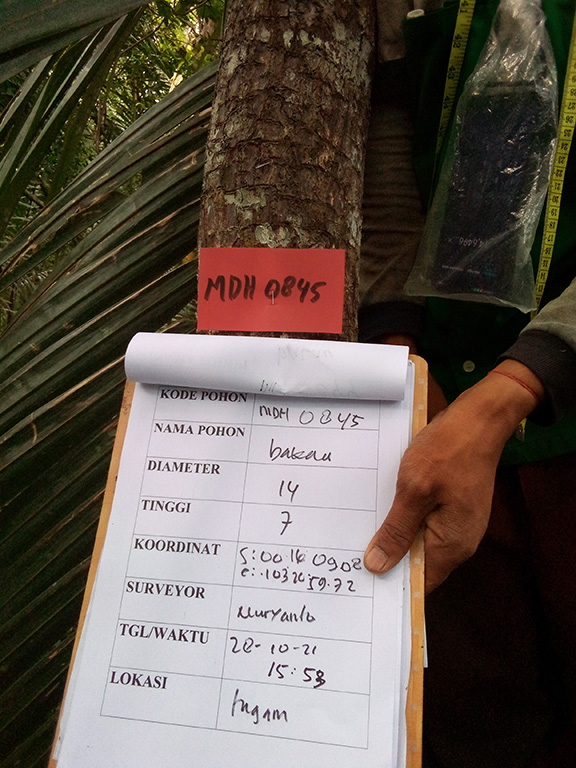 MDH 0845
KODE POHON MDH 0845
NAMA POHON bakau
DIAMETER 14
TINGGI 7
KOORDINAT S:00.16 0908
e:.103 26.59.72
SURVEYOR Nuryanto
TGL/WAKTU 28-10-21
15:53
LOKASI